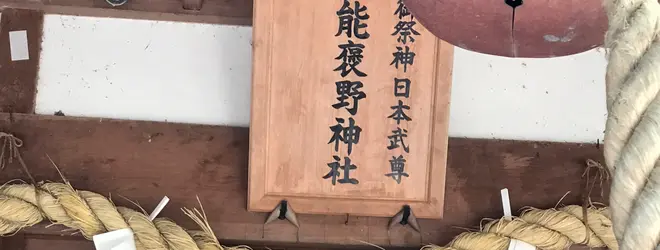 御祭神日本武尊
能褒野神社